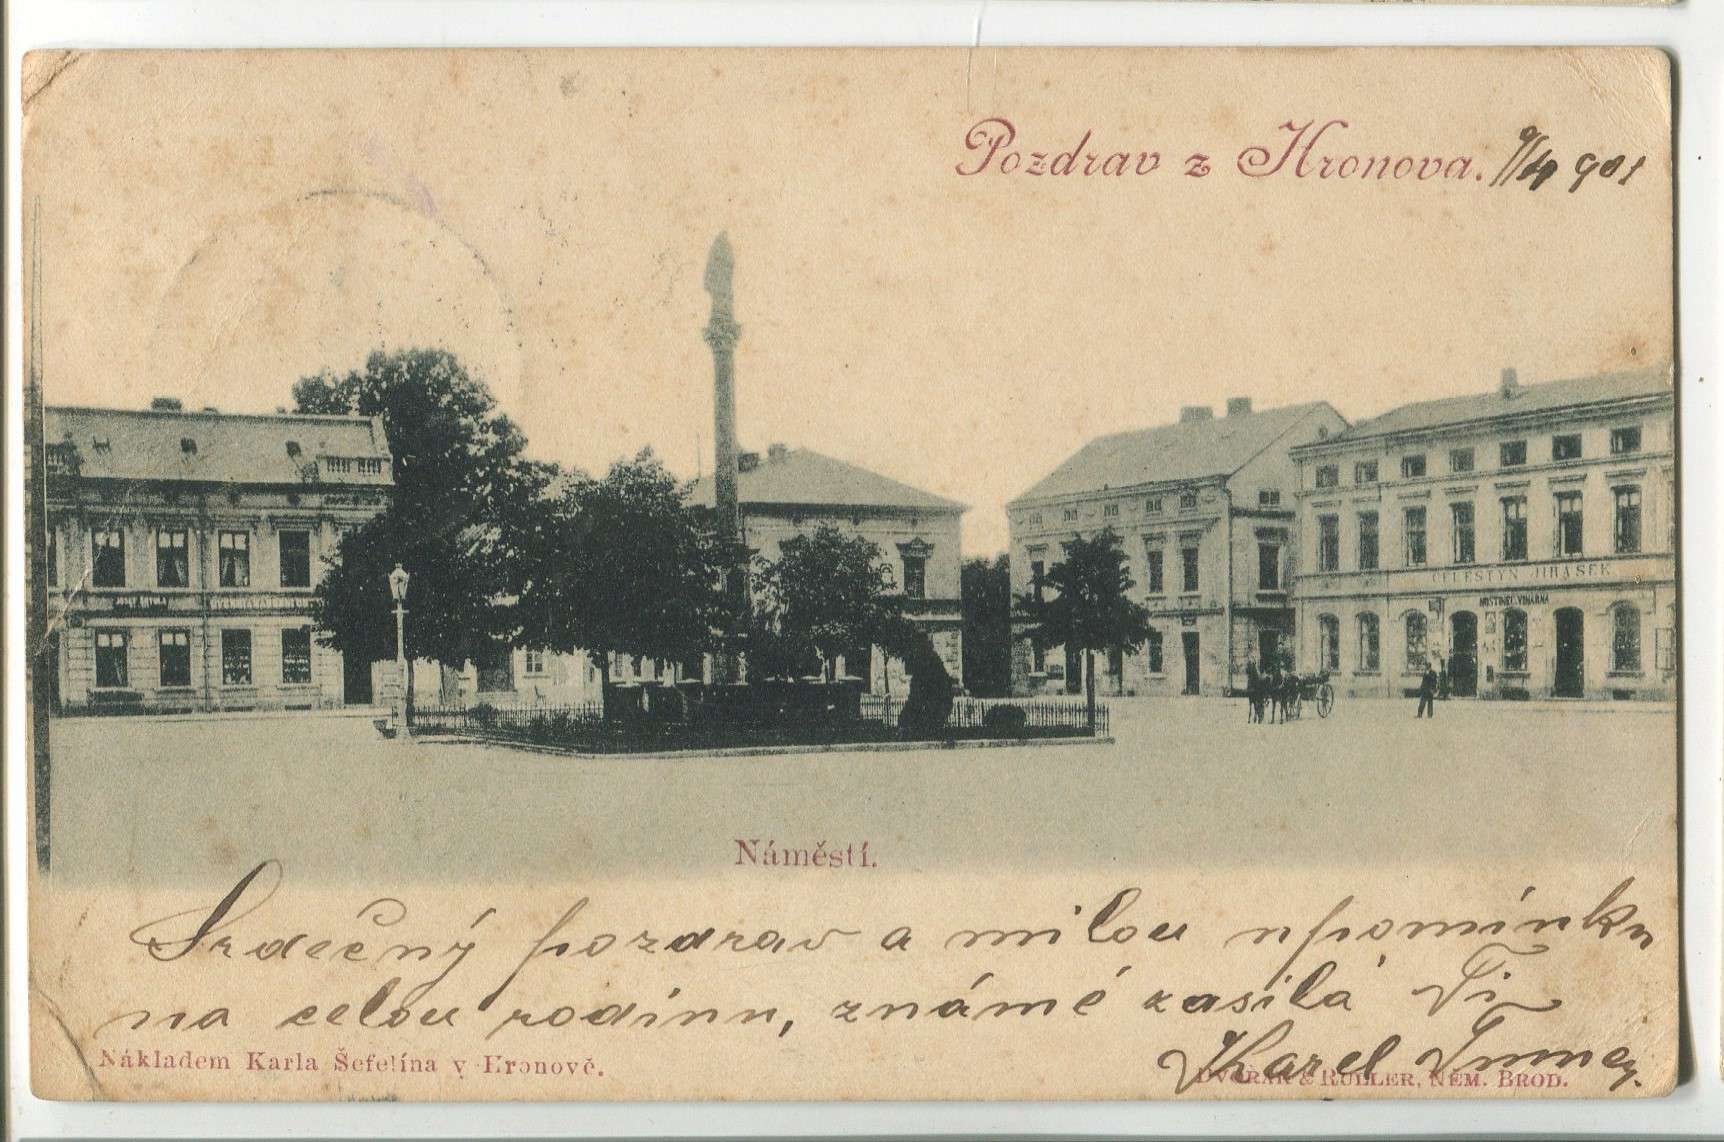 Pozdrav z Hronova. 9/4 901
CELESTÝN JIRÁSEK
HOSTINEC VINÁRNA
Náměstí.
Srdečný pozdrav a milou upomínku
na celou rodinu, známé zasílá Ti
Karel
Nákladem Karla Šefelína v Hronově.
DVOŘÁK & ROLLER, NĚM. BROD.